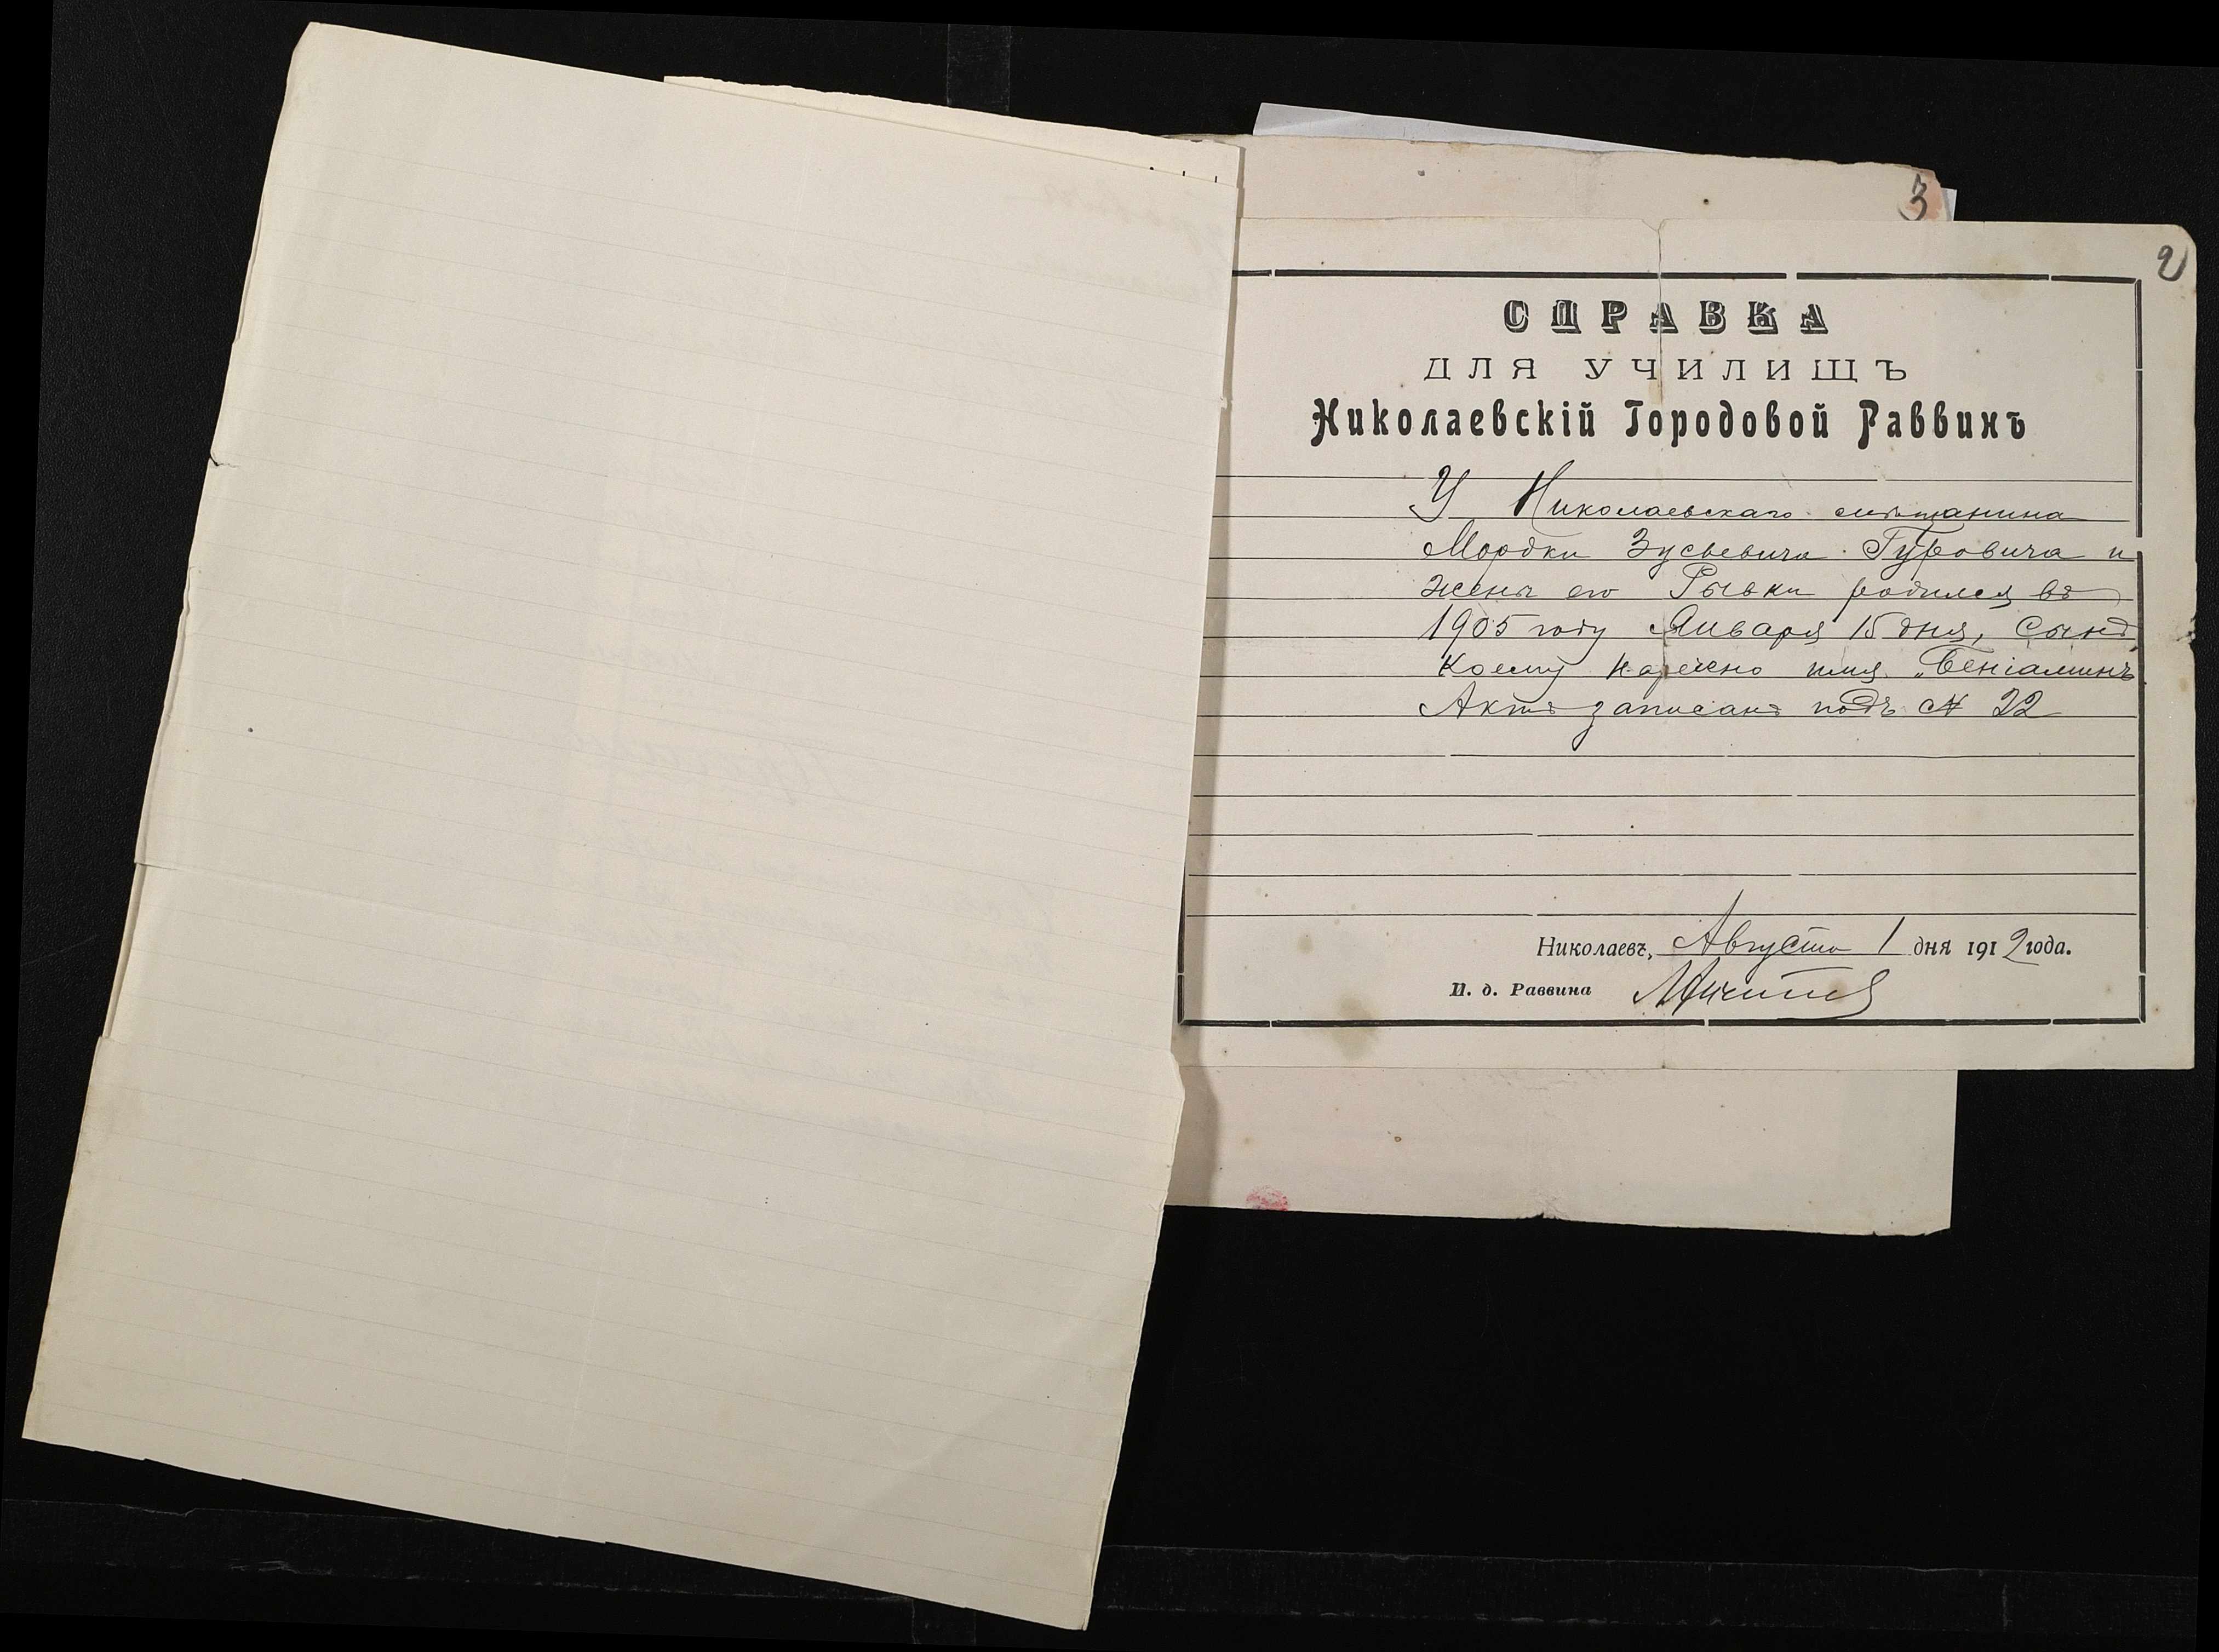 3
2
СПРАВКА
ДЛЯ УЧИЛИЩЪ
Николаевскій Городовой Раввинъ
У Николаевскаго мѣщанина
Мордки Зусьевича Гуровича и
жены его Рывки родился въ
1905 году Января 15 дня, Сынъ
коему наречено имя „Беніаминъ
Актъ записанъ подъ № 22
Николаевъ, Августа 1 дня 1912 года.
И. д. Раввина